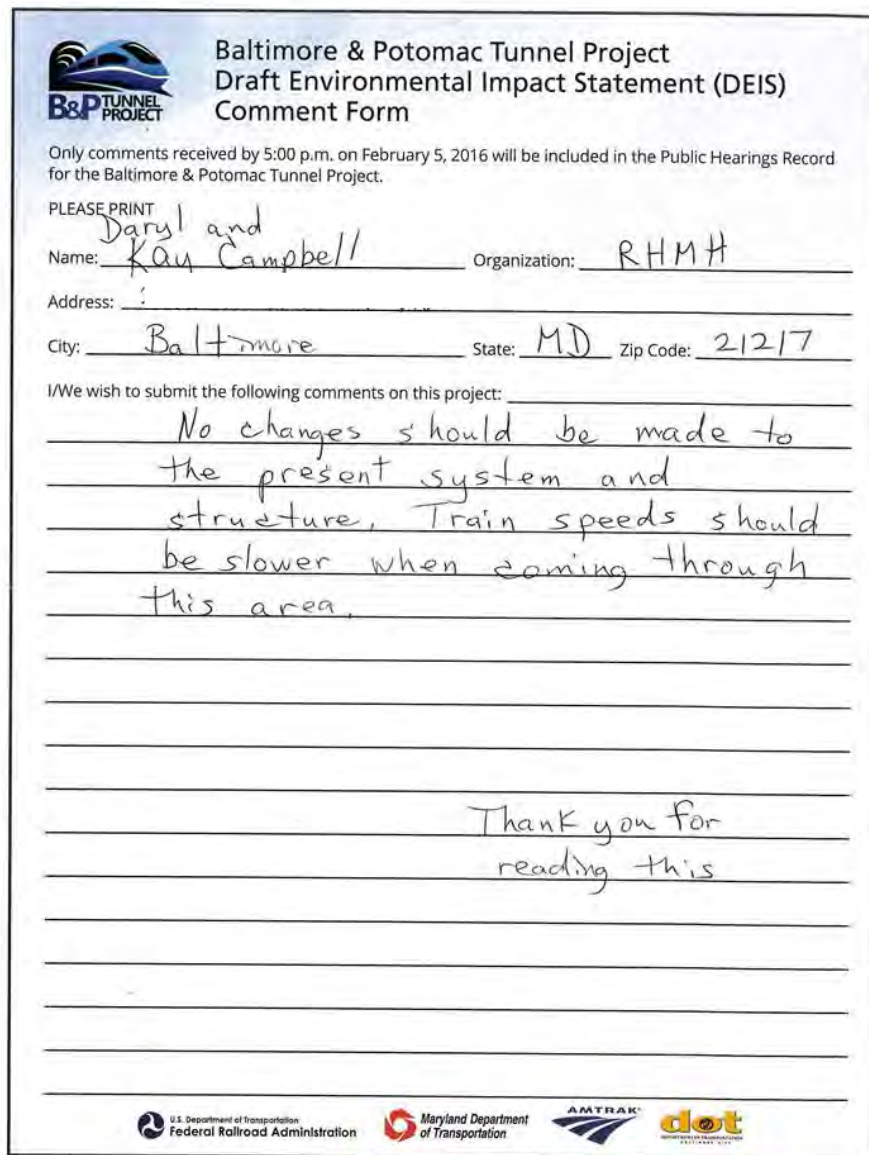 B&P TUNNEL PROJECT
Baltimore & Potomac Tunnel Project
Draft Environmental Impact Statement (DEIS)
Comment Form
Only comments received by 5:00 p.m. on February 5, 2016 will be included in the Public Hearings Record
for the Baltimore & Potomac Tunnel Project.
PLEASE PRINT
Daryl and
Name: Kay Campbell Organization: RHMH
Address:
City: Baltimore State: MD Zip Code: 21217
I/We wish to submit the following comments on this project:
No changes should be made to
the present system and
structure. Train speeds should
be slower when coming through
this area.
Thank you for
reading this
U.S. Department of Transportation
Federal Railroad Administration
Maryland Department
of Transportation
AMTRAK
dot
DEPARTMENT OF TRANSPORTATION
BALTIMORE CITY